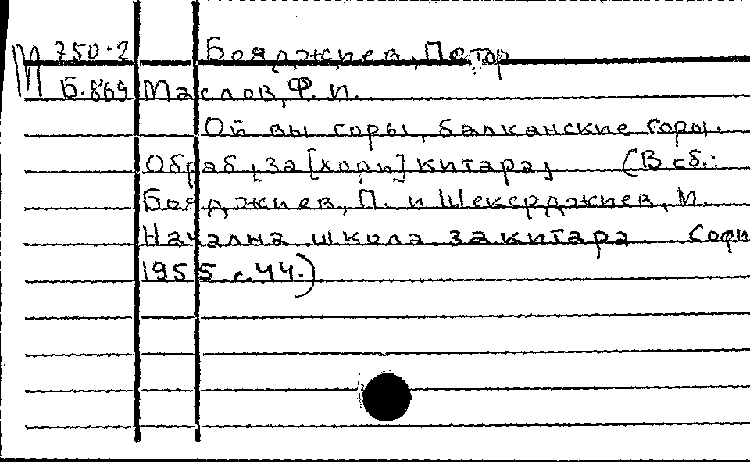 М 750-2 Бояджиев, Петър
Б.869 Маслов, Ф. И.
Ой вы горы, балканские горы.
Обраб. за [хор и] китара, (В сб.:
Бояджиев, П. и Шекерджиев, М.
Начална школа за китара Софи
1955 с.44.)